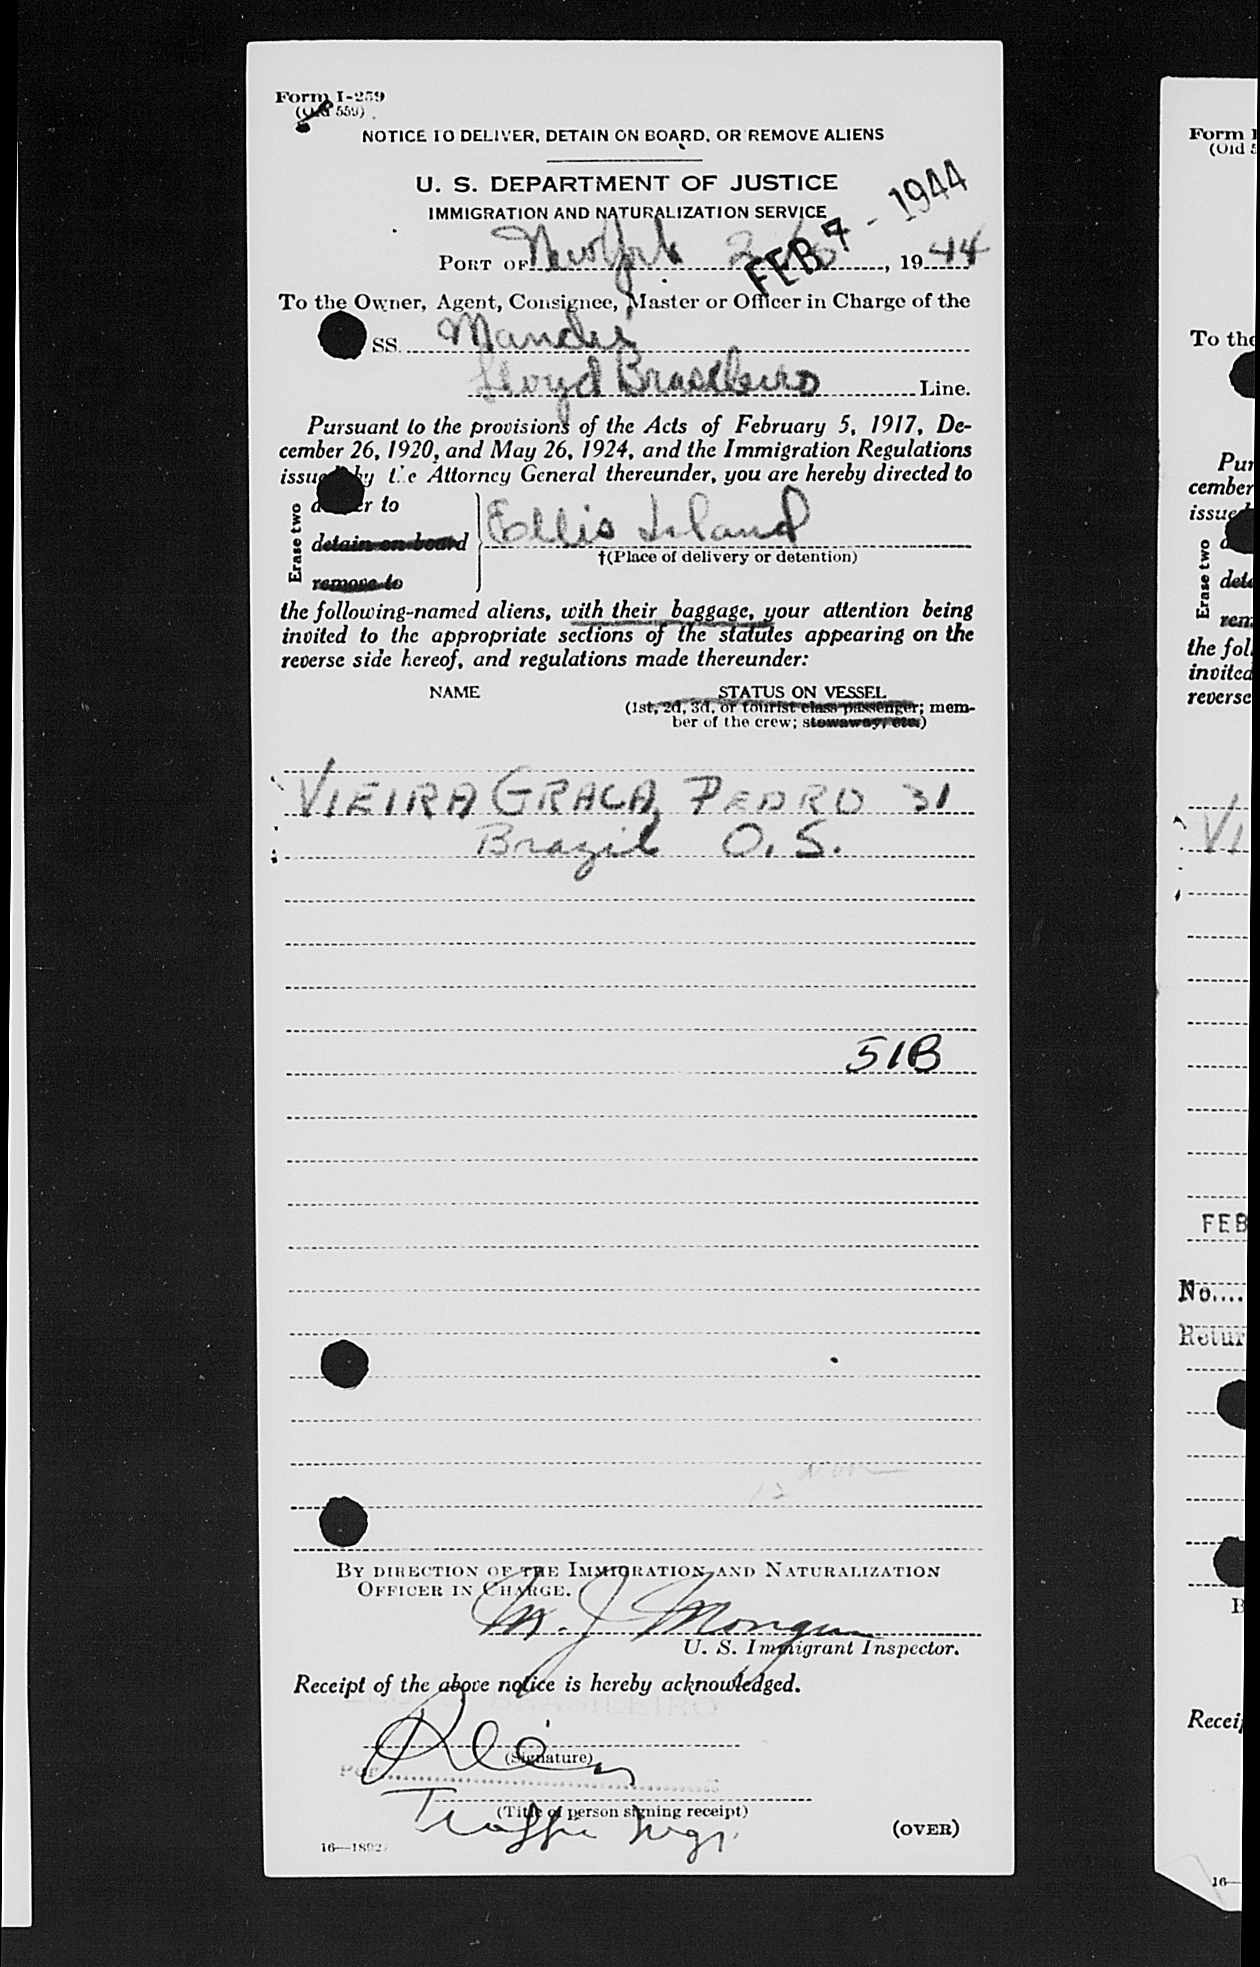 Form I-259
(Old 559)
NOTICE TO DELIVER, DETAIN ON BOARD, OR REMOVE ALIENS
U. S. DEPARTMENT OF JUSTICE
IMMIGRATION AND NATURALIZATION SERVICE
FEB 7 - 1944
PORT OF New York 2, 1944
To the Owner, Agent, Consignee, Master or Officer in Charge of the
SS.
Lloyd Brasileiro Line.
Pursuant to the provisions of the Acts of February 5, 1917, De-
cember 26, 1920, and May 26, 1924, and the Immigration Regulations
issued by the Attorney General thereunder, you are hereby directed to
Erase two
deliver to
detain on board
remove to
Ellis Island
†(Place of delivery or detention)
the following-named aliens, with their baggage, your attention being
invited to the appropriate sections of the statutes appearing on the
reverse side hereof, and regulations made thereunder:
NAME STATUS ON VESSEL
(1st, 2d, 3d, or tourist class passenger; mem-
ber of the crew; stowaway, etc.)
VIEIRA GRACA, PEDRO 31
Brazil O.S.
51B
BY DIRECTION OF THE IMMIGRATION AND NATURALIZATION
OFFICER IN CHARGE.
M. J.
U. S. Immigrant Inspector.
Receipt of the above notice is hereby acknowledged.
(Signature)
Per
(Title of person signing receipt)
Traffic Mgr.
(OVER)
Form
(Old
To the
Pur
cember
issued
Erase two
dete
rem
the fol
invited
reverse
VI
FEB
No....
Retur
Receip
16—